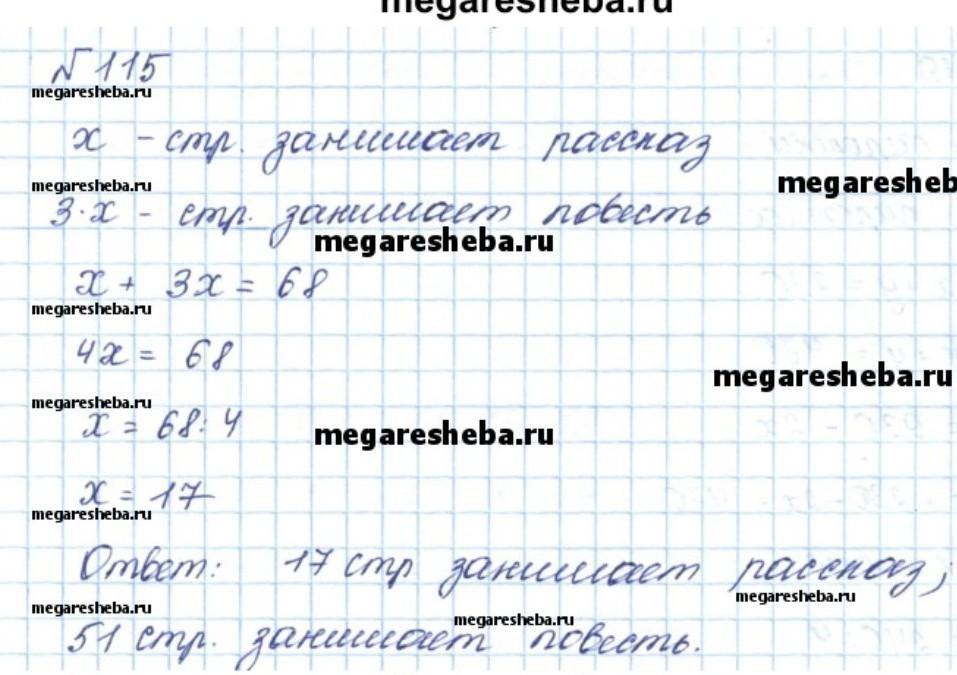 megaresheba.ru
№115
megaresheba.ru
x - стр. занимает рассказ
megaresheba.ru
megaresheb
3·x - стр. занимает повесть
megaresheba.ru
x + 3x = 68
megaresheba.ru
4x = 68
megaresheba.ru
megaresheba.ru
x = 68:4
megaresheba.ru
x = 17
megaresheba.ru
Ответ: 17 стр занимает рассказ;
megaresheba.ru
megaresheba.ru
megaresheba.ru
51 стр. занимает повесть.